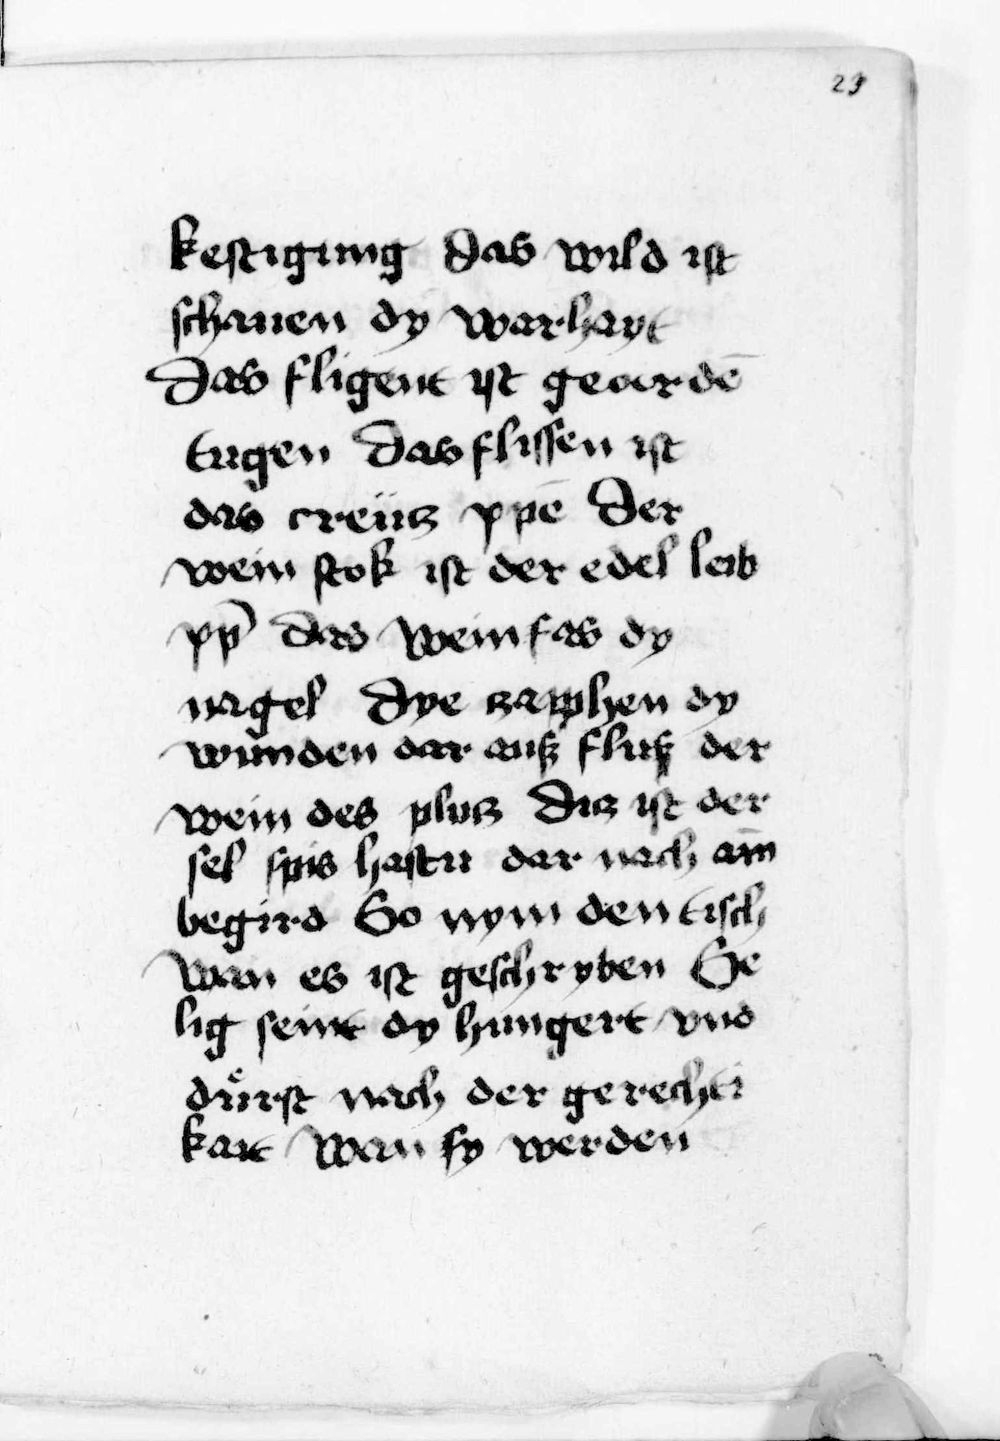 23
kestigung das wild ist
schauen dy warhayt
Das fligent ist geoordē
tugen Das flissen ist
das creücz xpē Der
wein stok ist der edel leib
xp̄i das weinfas dy
nagel Dye zapphen dy
wunden dar auß fluß der
wein des plutz Ditz ist der
sel spis hastu dar nach ain̄
begird So nym den tisch
Wan es ist geschryben Se
lig seint dy hungert vnd
důrst nach der gerechti
kait Wan sy werden